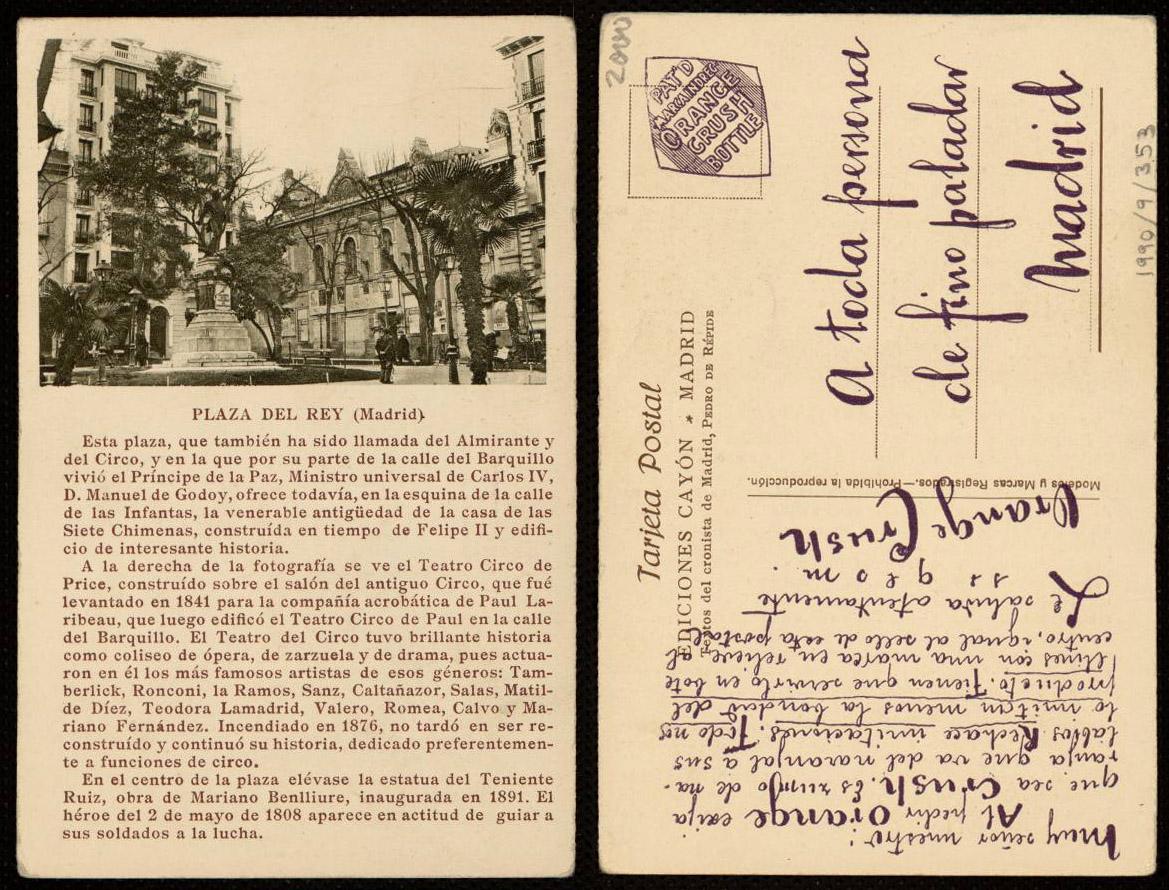 PLAZA DEL REY (Madrid)
Esta plaza, que también ha sido llamada del Almirante y
del Circo, y en la que por su parte de la calle del Barquillo
vivió el Príncipe de la Paz, Ministro universal de Carlos IV,
D. Manuel de Godoy, ofrece todavía, en la esquina de la calle
de las Infantas, la venerable antigüedad de la casa de las
Siete Chimenas, construída en tiempo de Felipe II y edifi-
cio de interesante historia.
A la derecha de la fotografía se ve el Teatro Circo de
Price, construído sobre el salón del antiguo Circo, que fué
levantado en 1841 para la compañía acrobática de Paul La-
ribeau, que luego edificó el Teatro Circo de Paul en la calle
del Barquillo. El Teatro del Circo tuvo brillante historia
como coliseo de ópera, de zarzuela y de drama, pues actua-
ron en él los más famosos artistas de esos géneros: Tam-
berlick, Ronconi, la Ramos, Sanz, Caltañazor, Salas, Matil-
de Díez, Teodora Lamadrid, Valero, Romea, Calvo y Ma-
riano Fernández. Incendiado en 1876, no tardó en ser re-
construído y continuó su historia, dedicado preferentemen-
te a funciones de circo.
En el centro de la plaza elévase la estatua del Teniente
Ruiz, obra de Mariano Benlliure, inaugurada en 1891. El
héroe del 2 de mayo de 1808 aparece en actitud de guiar a
sus soldados a la lucha.
2000
PAT'D
MARCAINDREG
ORANGE
CRUSH
BOTTLE
A toda persona
de fino paladar
Madrid
1990/9/353
Tarjeta Postal
EDICIONES CAYÓN * MADRID
Textos del cronista de Madrid, PEDRO DE RÉPIDE
Modelos y Marcas Registrados.—Prohibida la reproducción.
Muy señor nuestro:
Al pedir Orange exija
que sea Crush. Es zumo de na-
ranja que va del naranjal a sus
labios. Rechace imitaciones. Todo nos
lo imitan menos la bondad del
producto. Tienen que servirlo en bote
llines con una marca en relieve al
centro, igual al sello de esta postal
Le saluda atentamente
ss q e s m
Orange Crush